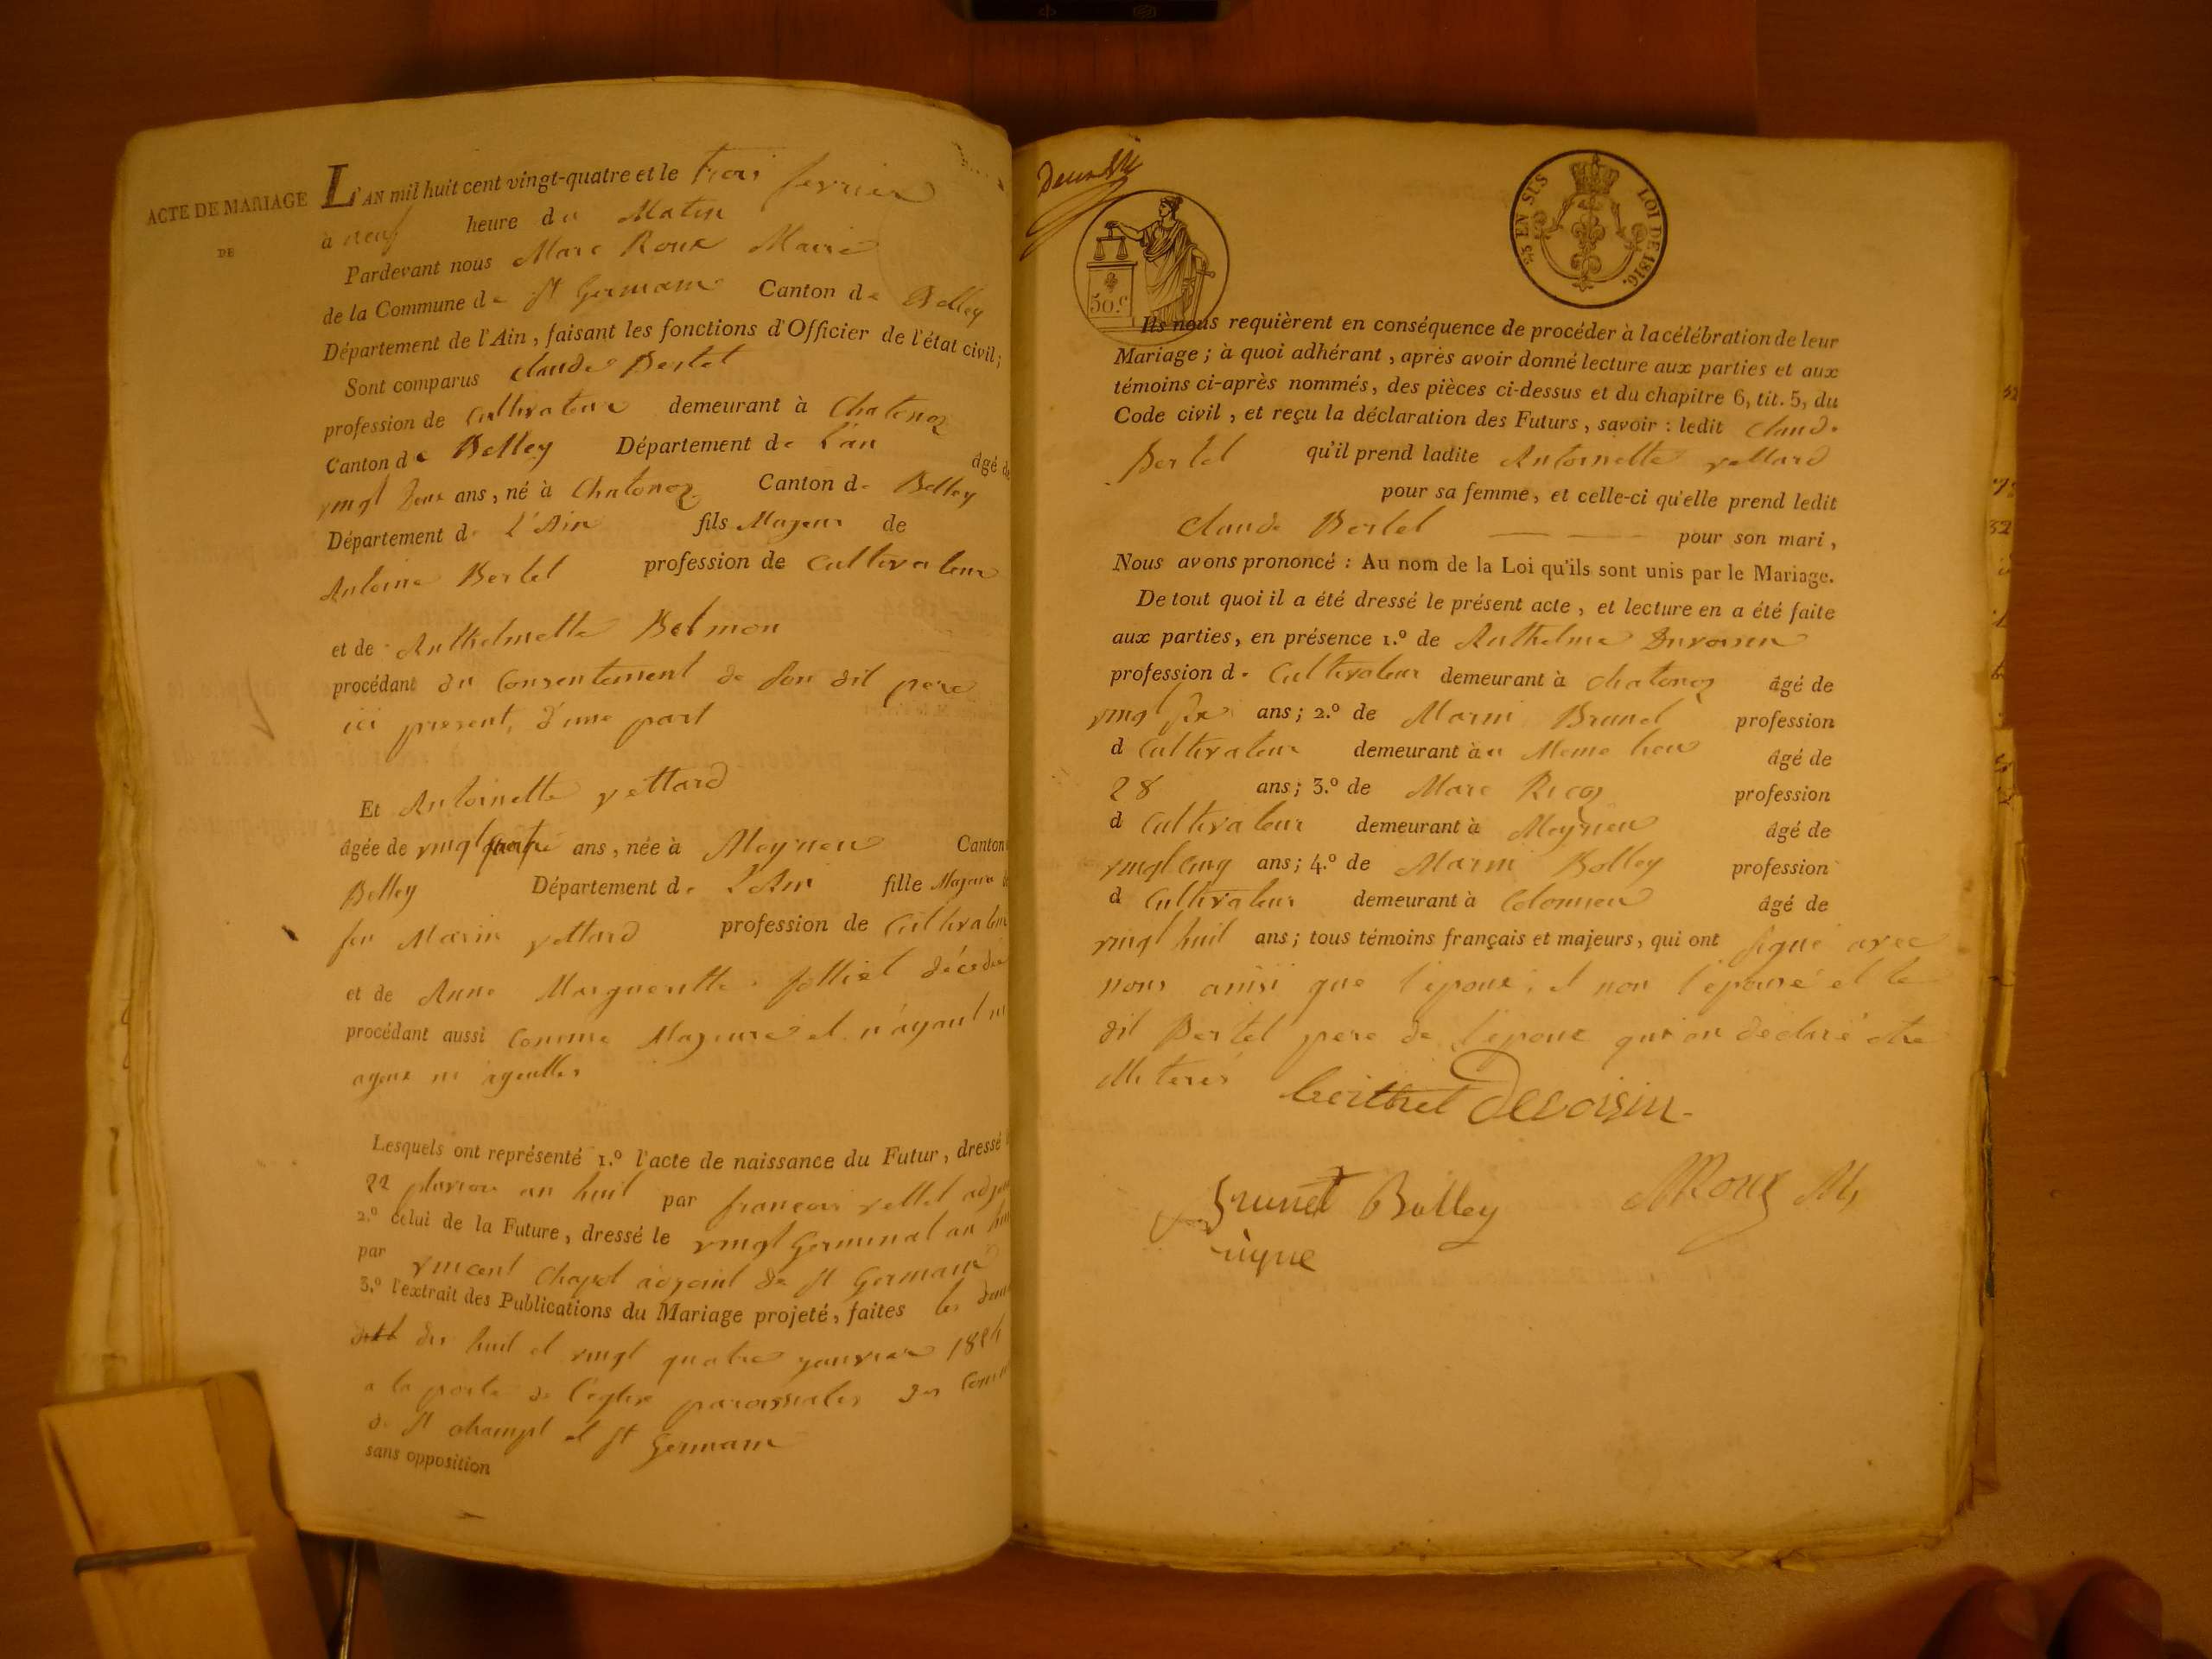 ACTE DE MARIAGE
DE
L'AN mil huit cent vingt-quatre et le trois fevrier
à neuf heure du Matin
Pardevant nous Marc Roux Maire
de la Commune de St Germain Canton de Belley
Département de l'Ain, faisant les fonctions d'Officier de l'état civil;
Sont comparus Claude Bertet
profession de Cultivateur demeurant à Chatonoz
Canton de Belley Département de L'an âgé de
vingt ans, né à Chatonoz Canton de Belley
Département de L'Ain fils Majeur de
Antoine Bertet profession de Cultivateur
et de Anthelmette Belmon
procédant du Consentement de son dit pere
ici present, d'une part
Et Antoinette vettard
âgée de vingt quatre ans, née à Meyrieu Canton
Belley Département de L'Ain fille Majeure
feu Marin vettard profession de Cultivateur
et de Anne Margueritte décédée
procédant aussi Comme Majeure et n'ayant ni
ayeux ni ayeulles
Lesquels ont représenté 1.º l'acte de naissance du Futur, dressé
22 pluviose an huit par françois vettet
2.º celui de la Future, dressé le vingt Germinal an
par vincent Chapel adjoint de St Germain
3.º l'extrait des Publications du Mariage projeté, faites les
dix huit et vingt quatre janvier 1824
a la porte de l'eglise paroissiales des
de St champt et St Germain
sans opposition
50.c
EN SUS LOI DE 1816.
Ils nous requièrent en conséquence de procéder à la célébration de leur
Mariage; à quoi adhérant, après avoir donné lecture aux parties et aux
témoins ci-après nommés, des pièces ci-dessus et du chapitre 6, tit. 5, du
Code civil, et reçu la déclaration des Futurs, savoir: ledit Claude
Bertet qu'il prend ladite Antoinette vettard
pour sa femme, et celle-ci qu'elle prend ledit
Claude Bertet pour son mari,
Nous avons prononcé: Au nom de la Loi qu'ils sont unis par le Mariage.
De tout quoi il a été dressé le présent acte, et lecture en a été faite
aux parties, en présence 1.º de Anthelme
profession de Cultivateur demeurant à Chatonoz âgé de
vingt six ans; 2.º de Marin Brunet profession
d Cultivateur demeurant à u Meme lieu âgé de
28 ans; 3.º de Marc profession
d Cultivateur demeurant à Meyrieu âgé de
vingt cinq ans; 4.º de Marin Bolley profession
d Cultivateur demeurant à Colomieu âgé de
vingt huit ans; tous témoins français et majeurs, qui ont signé avec
nous ainsi que l'epoux, et non l'epouse et le
dit Bertet pere de l'epoux qui on déclaré etre
illiterés
berthet devoisin
Brunet Bolley MRoux M